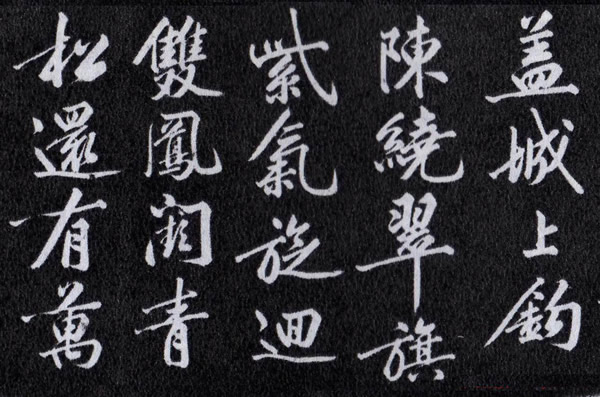 盖城上鈞
陳繞翠旗
紫氣旋迴
雙鳳闕青
松還有萬